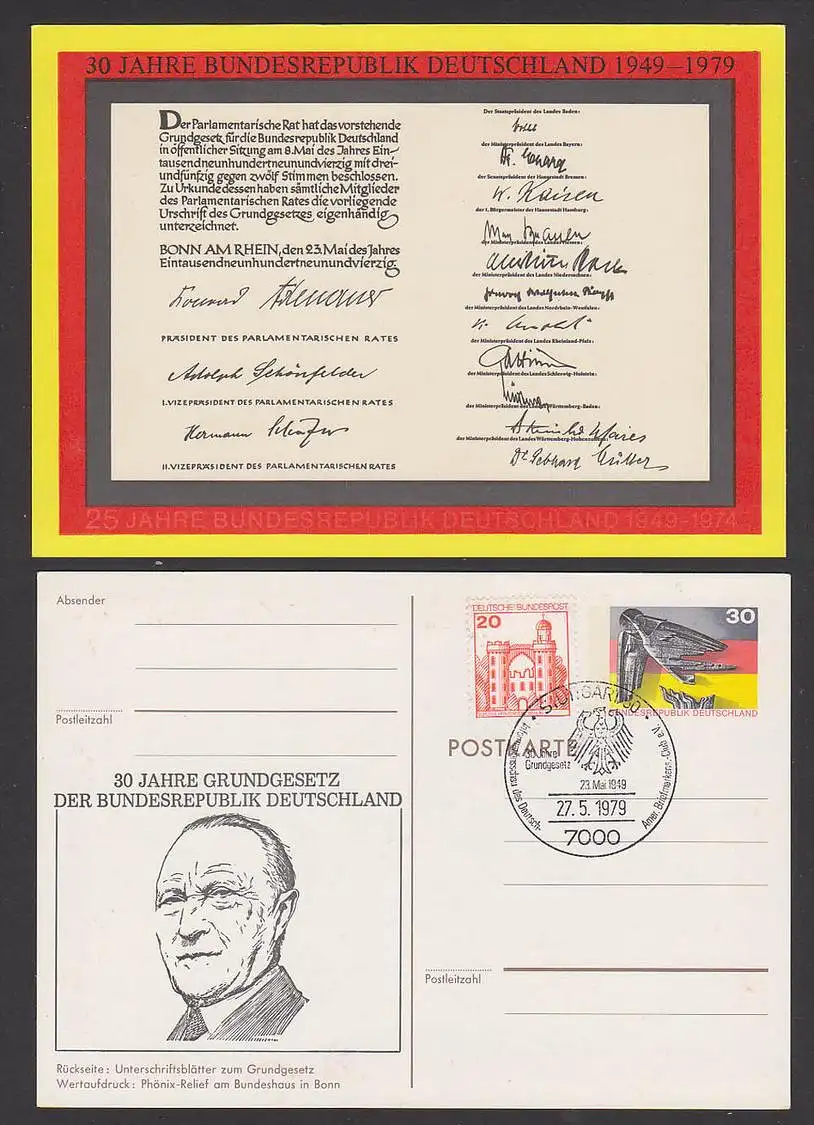 30 JAHRE BUNDESREPUBLIK DEUTSCHLAND 1949–1979
Der Parlamentarische Rat hat das vorstehende
Grundgesetz für die Bundesrepublik Deutschland
in öffentlicher Sitzung am 8. Mai des Jahres Ein-
tausendneunhundertneunundvierzig mit drei-
undfünfzig gegen zwölf Stimmen beschlossen.
Zu Urkunde dessen haben sämtliche Mitglieder
des Parlamentarischen Rates die vorliegende
Urschrift des Grundgesetzes eigenhändig
unterzeichnet.
BONN AM RHEIN, den 23. Mai des Jahres
Eintausendneunhundertneunundvierzig.
Konrad Adenauer
PRÄSIDENT DES PARLAMENTARISCHEN RATES
Adolph Schönfelder
I. VIZEPRÄSIDENT DES PARLAMENTARISCHEN RATES
Hermann Schäfer
II. VIZEPRÄSIDENT DES PARLAMENTARISCHEN RATES
Der Staatspräsident des Landes Baden:
der Ministerpräsident des Landes Bayern:
Dr. Ehard
der Senatspräsident der Hansestadt Bremen:
W. Kaisen
der 1. Bürgermeister der Hansestadt Hamburg:
Max Brauer
der Ministerpräsident des Landes Hessen:
der Ministerpräsident des Landes Niedersachsen:
der Ministerpräsident des Landes Nordrhein-Westfalen:
K. Arnold
der Ministerpräsident des Landes Rheinland-Pfalz:
der Ministerpräsident des Landes Schleswig-Holstein:
der Ministerpräsident des Landes Württemberg-Baden:
der Ministerpräsident des Landes Württemberg-Hohenzollern:
Dr. Gebhard Müller
25 JAHRE BUNDESREPUBLIK DEUTSCHLAND 1949–1974
Absender
Postleitzahl
30 JAHRE GRUNDGESETZ
DER BUNDESREPUBLIK DEUTSCHLAND
Rückseite: Unterschriftsblätter zum Grundgesetz
Wertaufdruck: Phönix-Relief am Bundeshaus in Bonn
DEUTSCHE BUNDESPOST
20
30
BUNDESREPUBLIK DEUTSCHLAND
POSTKARTE
STUTTGART 30
30 Jahre
Grundgesetz
23. Mai 1949
27.5.1979
7000
Informationsschau des Deutsch-
Amer. Briefmarken-Club e.V.
Postleitzahl